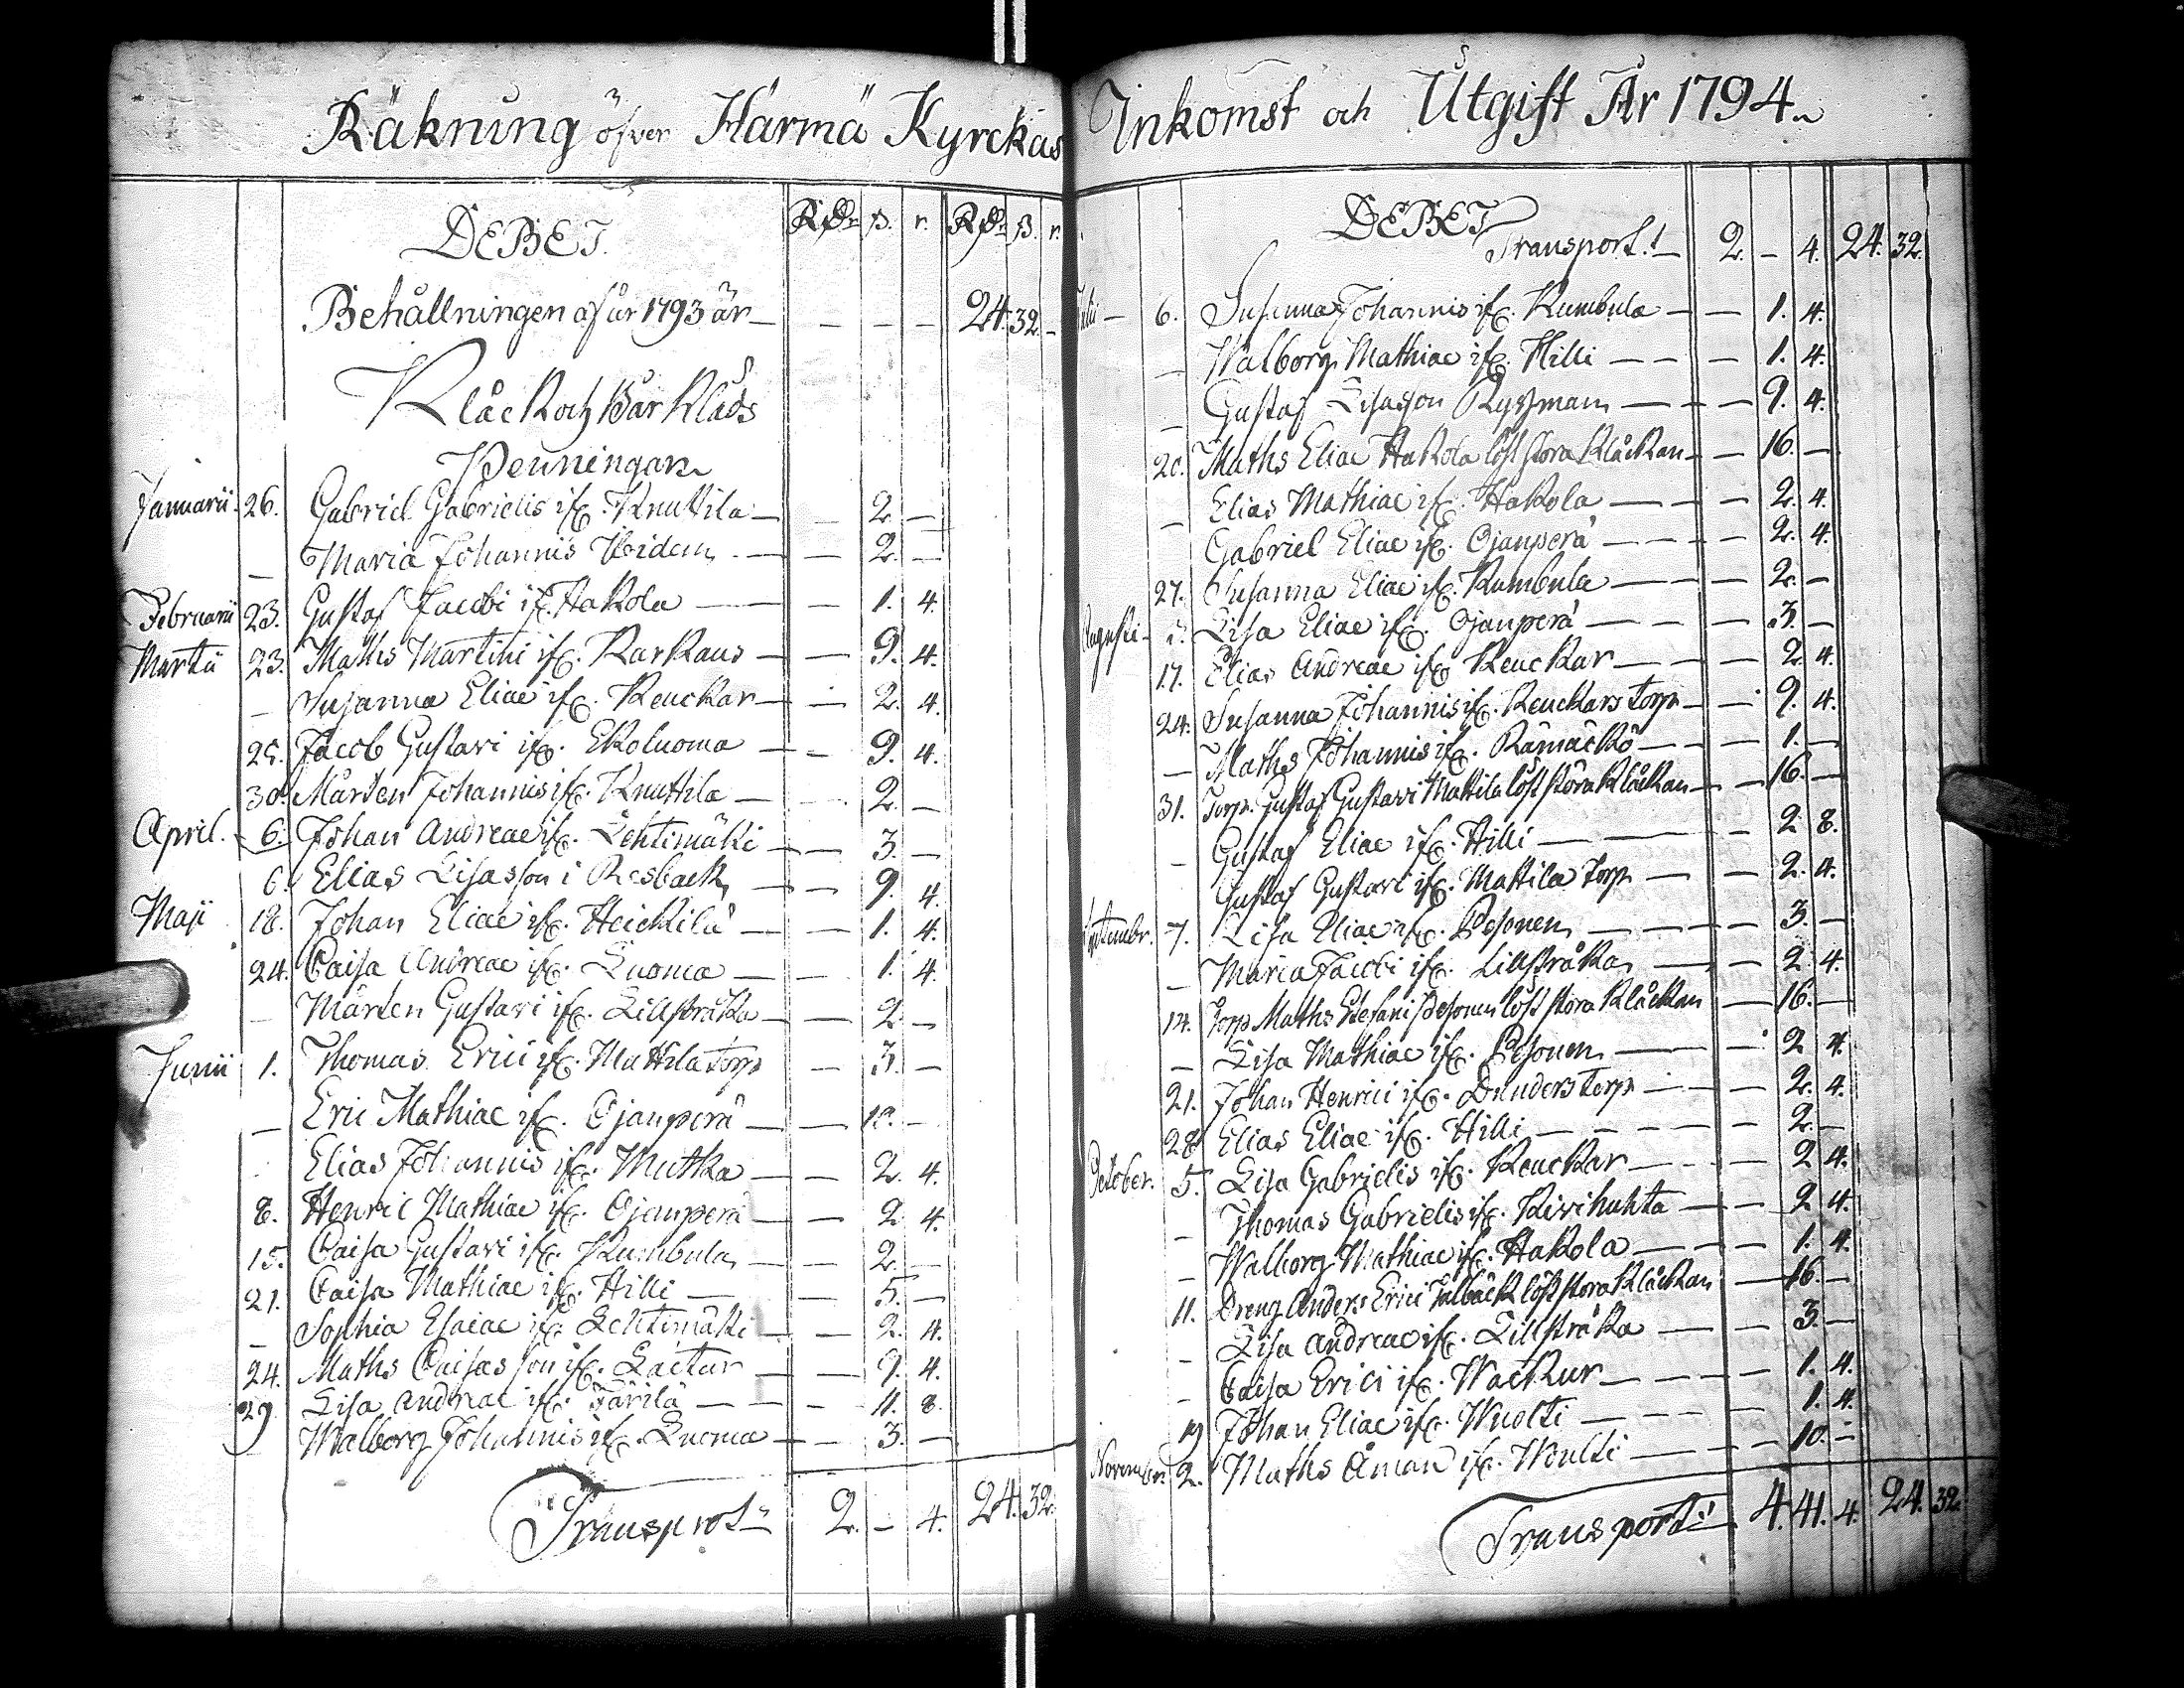 Räkning öfver Härmä Kyrckas
DEBET.
RDr ß. r. RDr ß. r.
Behållningen af år 1793 är — — — — 24. 32. —
Klåck och Bårkläds
Penningar
Januarii. 26. Gabriel Gabrielis if. Knuttila — — 2. —
— Maria Johannis Voidem — — 2. —
Februarii 23. Gustaf Jacobi if. Hakola — — 1. 4.
Martii 23. Maths Martini if. Karkaus — — 9. 4.
— Susanna Eliae if. Keuckar — — 2. 4.
25. Jacob Gustavi if. Ekoluoma — — 9. 4.
30. Mårten Johannis if. Knuttila — — 2. —
April. 6. Johan Andreae if. Lehtimäki — — 3. —
6. Elias Lisasson i Resback — — 9. 4.
Maji 18. Johan Eliae if. Heickilä — — 1. 4.
24. Caisa Andreae if. Luoma — — 1. 4.
— Mårten Gustavi if. Lillstråka — — 2. —
Junii 1. Thomas Erici if. Mattila torp — 3. —
— Eric Mathiae if. Ojanperä — —
Elias Johannis if. Mutka — — 2. 4.
8. Henric Mathiae if. Ojanperä — — 2. 4.
15. Caisa Gustavi if. Kumbula — — 2. —
21. Caisa Mathiae if. Hilli — — 5. —
— Sophia Esaiae if. Lehtimäki — — 2. 4.
24. Maths Caisasson if. — — 9. 4.
29. Lisa Andreae if. Järilä — — 11. 8.
Walborg Johannis if. Luoma — — 3. —
Transport 2. — 4. 24. 32.
Inkomst och Utgift År 1794.
DEBET
Transport! — 2. — 4. 24. 32.
6. Susanna Johannis if. Kumbula — — 1. 4.
— Walborg Mathiae if. Hilli — — — 1. 4.
— Gustaf Lisasson Ryssman — — — 9. 4.
20. Maths Eliae Hakola löst stora Klåckan — — 16. —
— Elias Mathiae if. Hakola — — — 2. 4.
Gabriel Eliae if. Ojanperä — — — 2. 4.
27. Susanna Eliae if. Kumbula — — — 2. —
Augusti — 3. Lisa Eliae if. Ojanperä — — — 3. —
17. Elias Andreae if. Keuckar — — — 2. 4.
24. Susanna Johannis if. Keuckars torp — — 9. 4.
— Maths Johannis if. Rämäckö — — — 1. —
31. Torp. Gustaf Gustavi Mattila löst stora Klåckan — — 16. —
— Gustaf Eliae if. Hilli — — 2. 8.
Gustaf Gustavi if. Mattila Torp — — 2. 4.
Septembr. 7. Lisa Eliae if. Pesonen — — — 3. —
— Maria Jacobi if. Lillstråka — — 2. 4.
14. Torp Maths Stefani Pesonen löst stora Klåckan — 16. —
— Lisa Mathiae if. Pesonen — — 2. 4.
21. Johan Henrici if. Dunders torp — — 2. 4.
28. Elias Eliae if. Hilli — — — — 2. —
October. 5. Lisa Gabrielis if. Keuckar — — — 2. 4.
— Thomas Gabrielis if. Kivihuhta — — 2. 4.
— Walborg Mathiae if. Hakola — — — 1. 4.
11. Dreng Anders Erici löst stora Klåckan — 16. —
— Lisa Andreae if. Lillstråka — — 3. —
— Caisa Erici if. Wackur — — — 1. 4.
19 Johan Eliae if. Wuolti — — — 1. 4.
November 2. Maths Åman if. Woulti — — — 10. —
Transport! 4. 41. 4. 24. 32.